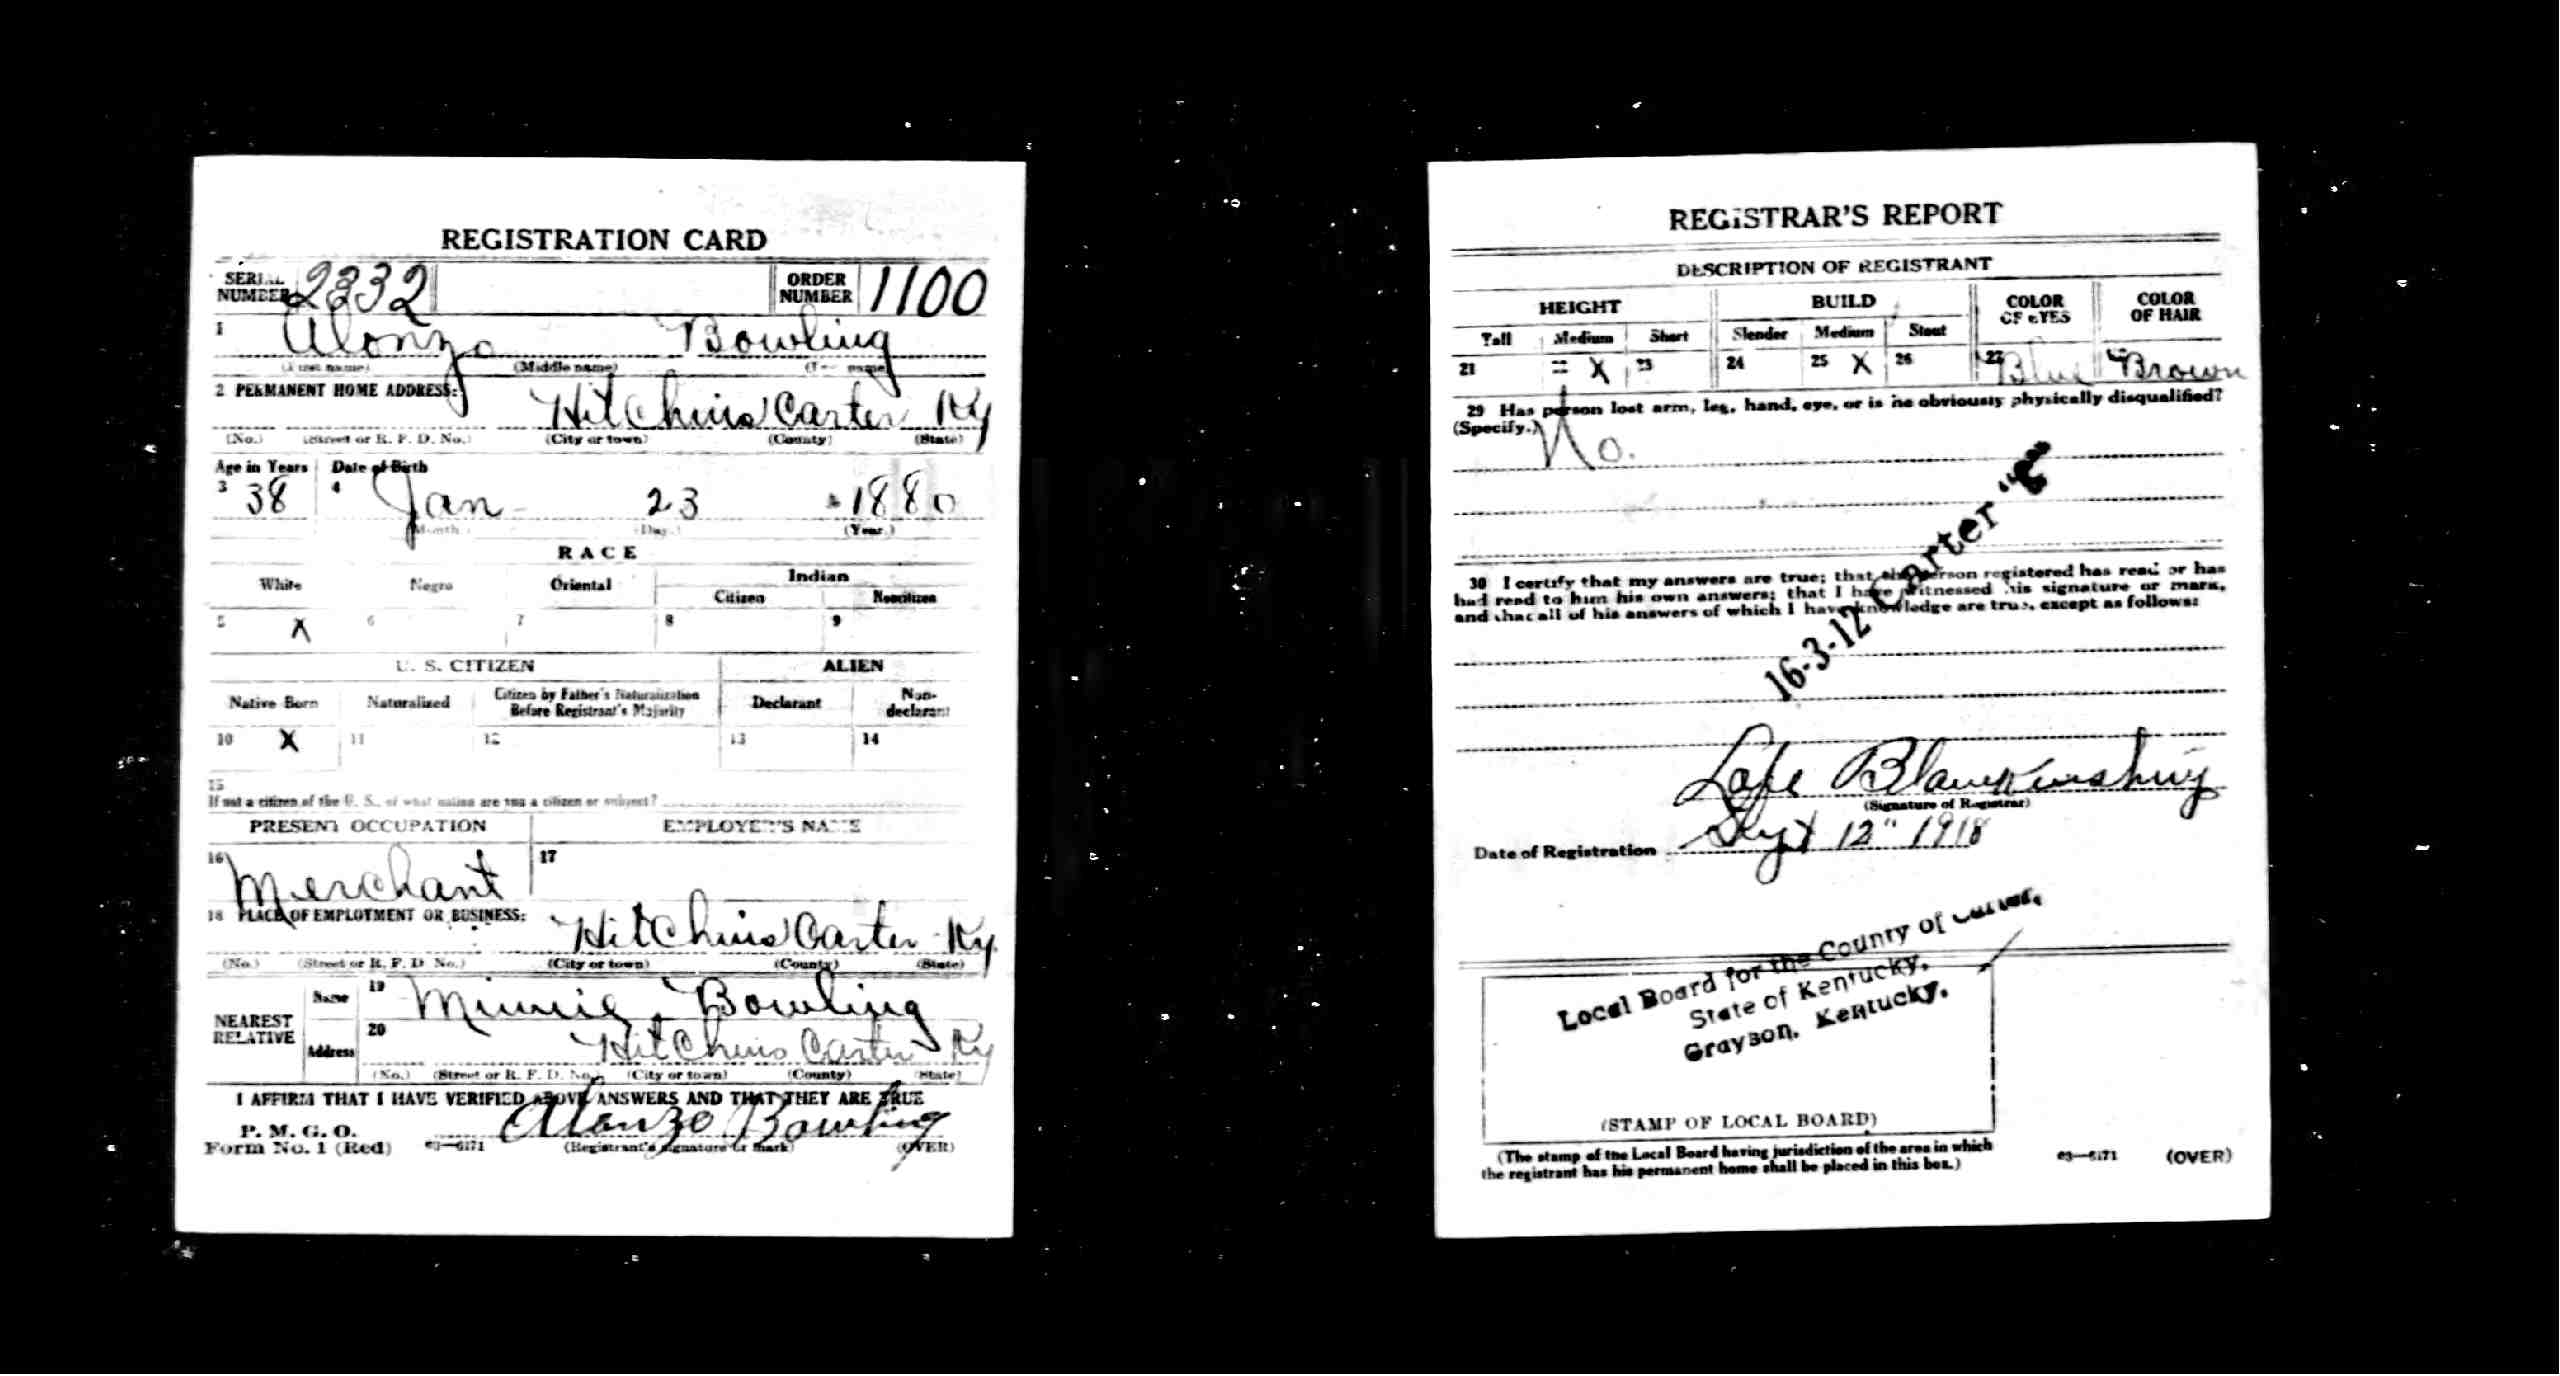 REGISTRATION CARD
SERIAL NUMBER 2332 ORDER NUMBER 1100
1 Alonzo Bowling
(First name) (Middle name) (Last name)
2 PERMANENT HOME ADDRESS:
Hitchins Carter Ky
(No.) (Street or R. F. D. No.) (City or town) (County) (State)
Age in Years Date of Birth
3 38 4 Jan 23 1880
(Month.) (Day.) (Year.)
RACE
White Negro Oriental Indian
Citizen Noncitizen
5 X 6 7 8 9
U. S. CITIZEN ALIEN
Native Born Naturalized Citizen by Father's Naturalization Before Registrant's Majority Declarant Non-declarant
10 X 11 12 13 14
15
If not a citizen of the U. S., of what nation are you a citizen or subject?
PRESENT OCCUPATION EMPLOYER'S NAME
16 Merchant 17
18 PLACE OF EMPLOYMENT OR BUSINESS:
Hitchins Carter Ky.
(No.) (Street or R. F. D. No.) (City or town) (County) (State)
NEAREST RELATIVE
Name 19 Minnie Bowling
Address 20 Hitchins Carter Ky
(No.) (Street or R. F. D. No.) (City or town) (County) (State)
I AFFIRM THAT I HAVE VERIFIED ABOVE ANSWERS AND THAT THEY ARE TRUE
P. M. G. O.
Form No. 1 (Red) 03—6171 Alonzo Bowling
(Registrant's signature or mark) (OVER)
REGISTRAR'S REPORT
DESCRIPTION OF REGISTRANT
HEIGHT BUILD COLOR OF EYES COLOR OF HAIR
Tall Medium Short Slender Medium Stout
21 22 X 23 24 25 X 26 27 Blue Brown
29 Has person lost arm, leg, hand, eye, or is he obviously physically disqualified?
(Specify.) No.
30 I certify that my answers are true; that the person registered has read or has
had read to him his own answers; that I have witnessed his signature or mark,
and that all of his answers of which I have knowledge are true, except as follows:
16-3-12 Carter
Lafe
(Signature of Registrar)
Date of Registration Sept 12" 1918
Local Board for the County of Carter,
State of Kentucky,
Grayson, Kentucky.
(STAMP OF LOCAL BOARD)
(The stamp of the Local Board having jurisdiction of the area in which
the registrant has his permanent home shall be placed in this box.)
03—6171 (OVER)